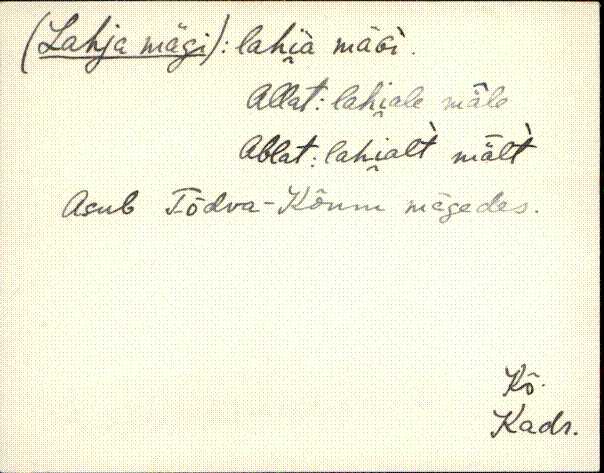 (Lahja mägi): lahi̯à mäɢì.
Allat: lahi̯ale mäle
Ablat: lahi̯alt̀ mält̀
Asub Tõdva-Kõnnu mägedes.
Kõ.
Kadr.